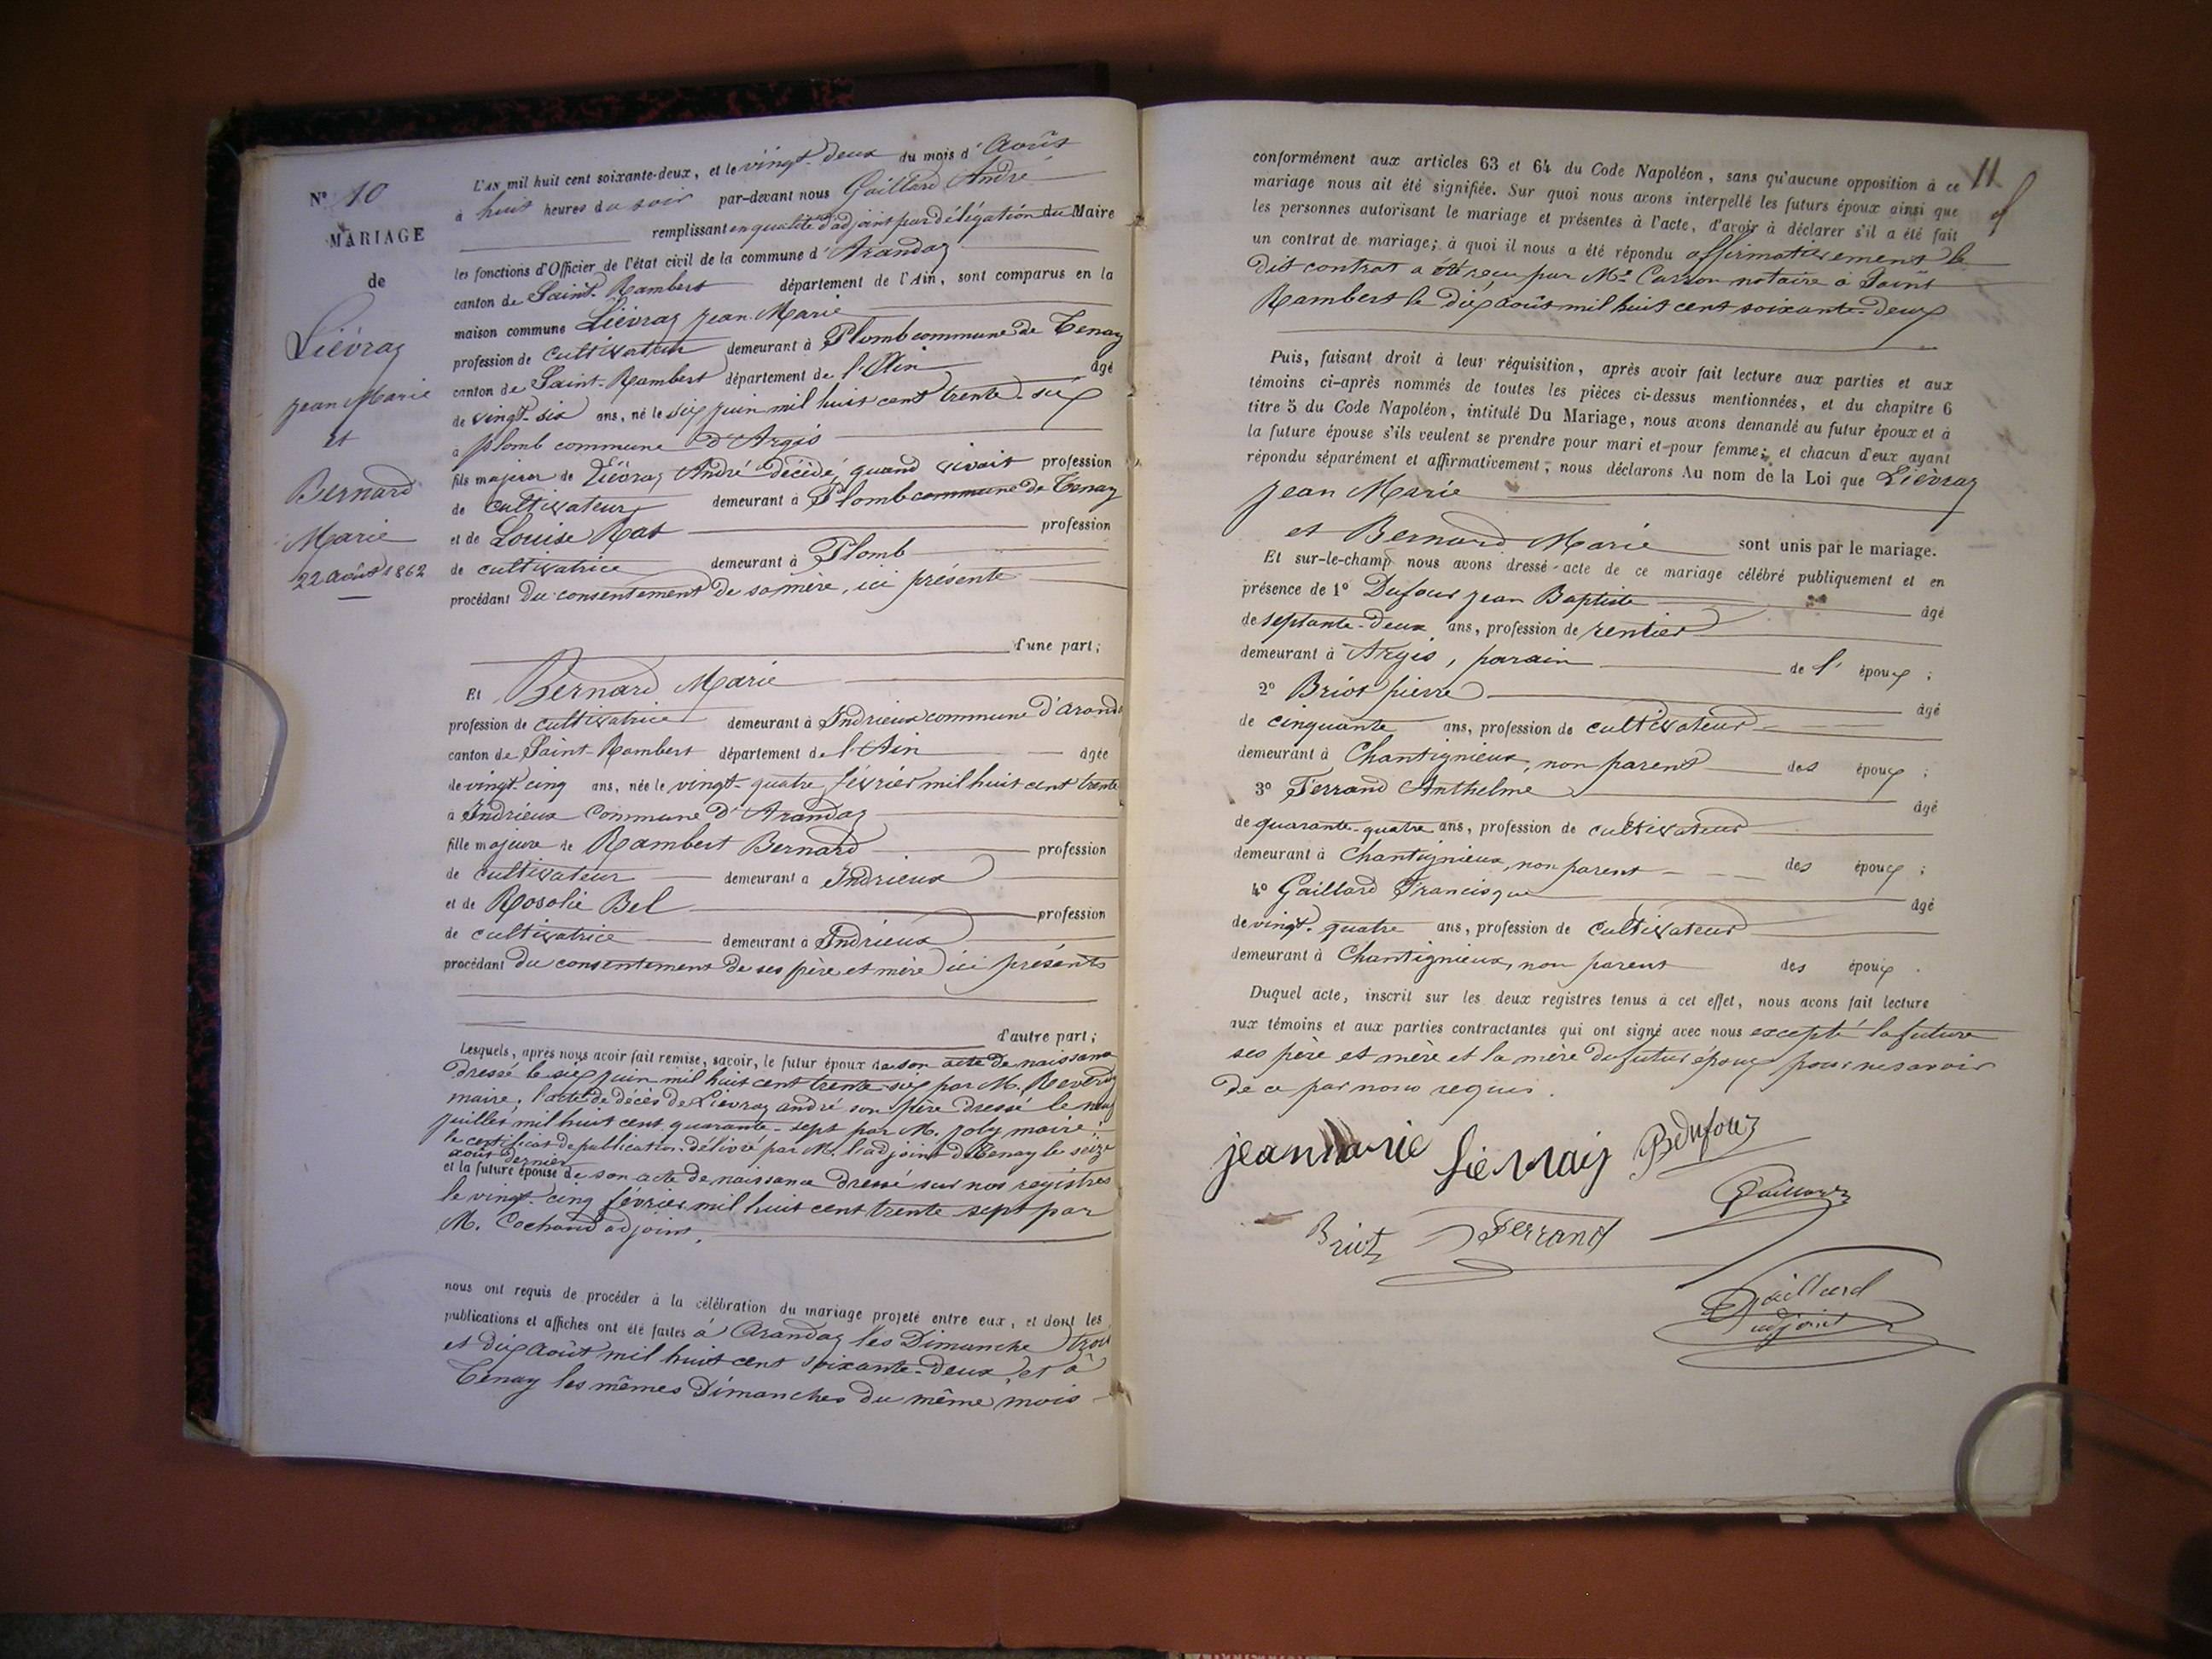 N° 10
MARIAGE
de
Liévray
Jean Marie
et
Bernard
Marie
22 août 1862
L'AN mil huit cent soixante-deux, et le vingt-deux du mois d'Août
à huit heures du soir par-devant nous Gaillard André
remplissant en qualité d'adjoint par délégation du Maire
les fonctions d'Officier de l'état civil de la commune d'Arandaz
canton de Saint-Rambert département de l'Ain, sont comparus en la
maison commune Liévraz Jean Marie
profession de cultivateur demeurant à Plomb commune de Tenay
canton de Saint-Rambert département de l'Ain âgé
de vingt-six ans, né le six juin mil huit cent trente-six
à plomb commune d'Argis
fils majeur de Liévraz André décédé, quand vivait profession
de cultivateur demeurant à Plomb commune de Tenay
et de Louise Rat profession
de cultivatrice demeurant à Plomb
procédant du consentement de sa mère, ici présente
d'une part;
Et Bernard Marie
profession de cultivatrice demeurant à Indrieux commune d'Arand
canton de Saint-Rambert département de l'Ain âgée
de vingt-cinq ans, née le vingt-quatre février mil huit cent trente
à Indrieux commune d'Arandaz
fille majeure de Rambert Bernard profession
de cultivateur demeurant à Indrieux
et de Rosalie Bel profession
de cultivatrice demeurant à Indrieux
procédant du consentement de ses père et mère ici présents
d'autre part;
Lesquels, après nous avoir fait remise, savoir, le futur époux de son acte de naissance
dressé le six juin mil huit cent trente-six par M.
maire, l'acte de décès de Liévraz andré son père dressé le neuf
juillet mil huit cent quarante-sept par M. Joly maire
le certificat de publication délivré par M. l'adjoint de Tenay le seize
août dernier
et la future épouse de son acte de naissance dressé sur nos registres
le vingt-cinq février mil huit cent trente sept par
M. Cochand adjoint.
nous ont requis de procéder à la célébration du mariage projeté entre eux, et dont les
publications et affiches ont été faites à Arandaz les Dimanche trois
et dix août mil huit cent soixante-deux, et à
Tenay les mêmes Dimanches du même mois
11
conformément aux articles 63 et 64 du Code Napoléon, sans qu'aucune opposition à ce
mariage nous ait été signifiée. Sur quoi nous avons interpellé les futurs époux ainsi que
les personnes autorisant le mariage et présentes à l'acte, d'avoir à déclarer s'il a été fait
un contrat de mariage; à quoi il nous a été répondu affirmativement le
dit contrat a été reçu par Me Carron notaire à Saint
Rambert le dix août mil huit cent soixante-deux
Puis, faisant droit à leur réquisition, après avoir fait lecture aux parties et aux
témoins ci-après nommés de toutes les pièces ci-dessus mentionnées, et du chapitre 6
titre 5 du Code Napoléon, intitulé Du Mariage, nous avons demandé au futur époux et à
la future épouse s'ils veulent se prendre pour mari et pour femme; et chacun d'eux ayant
répondu séparément et affirmativement, nous déclarons Au nom de la Loi que Liévray
Jean Marie
et Bernard Marie sont unis par le mariage.
Et sur-le-champ nous avons dressé acte de ce mariage célébré publiquement et en
présence de 1° Dufour Jean Baptiste âgé
de septante-deux ans, profession de rentier
demeurant à Argis, parain de l'époux;
2° Briot pierre âgé
de cinquante ans, profession de cultivateur
demeurant à Chantignieux, non parent des époux;
3° Ferrand Anthelme âgé
de quarante-quatre ans, profession de cultivateur
demeurant à Chantignieux, non parent des époux;
4° Gaillard Francisque âgé
de vingt-quatre ans, profession de cultivateur
demeurant à Chantignieux, non parent des époux.
Duquel acte, inscrit sur les deux registres tenus à cet effet, nous avons fait lecture
aux témoins et aux parties contractantes qui ont signé avec nous excepté la future
ses père et mère et la mère du futur époux pour ne savoir
de ce par nous requis.
jean marie lievray Bdufour
Gaillard
Briot Ferrand
Gaillard
adjoint